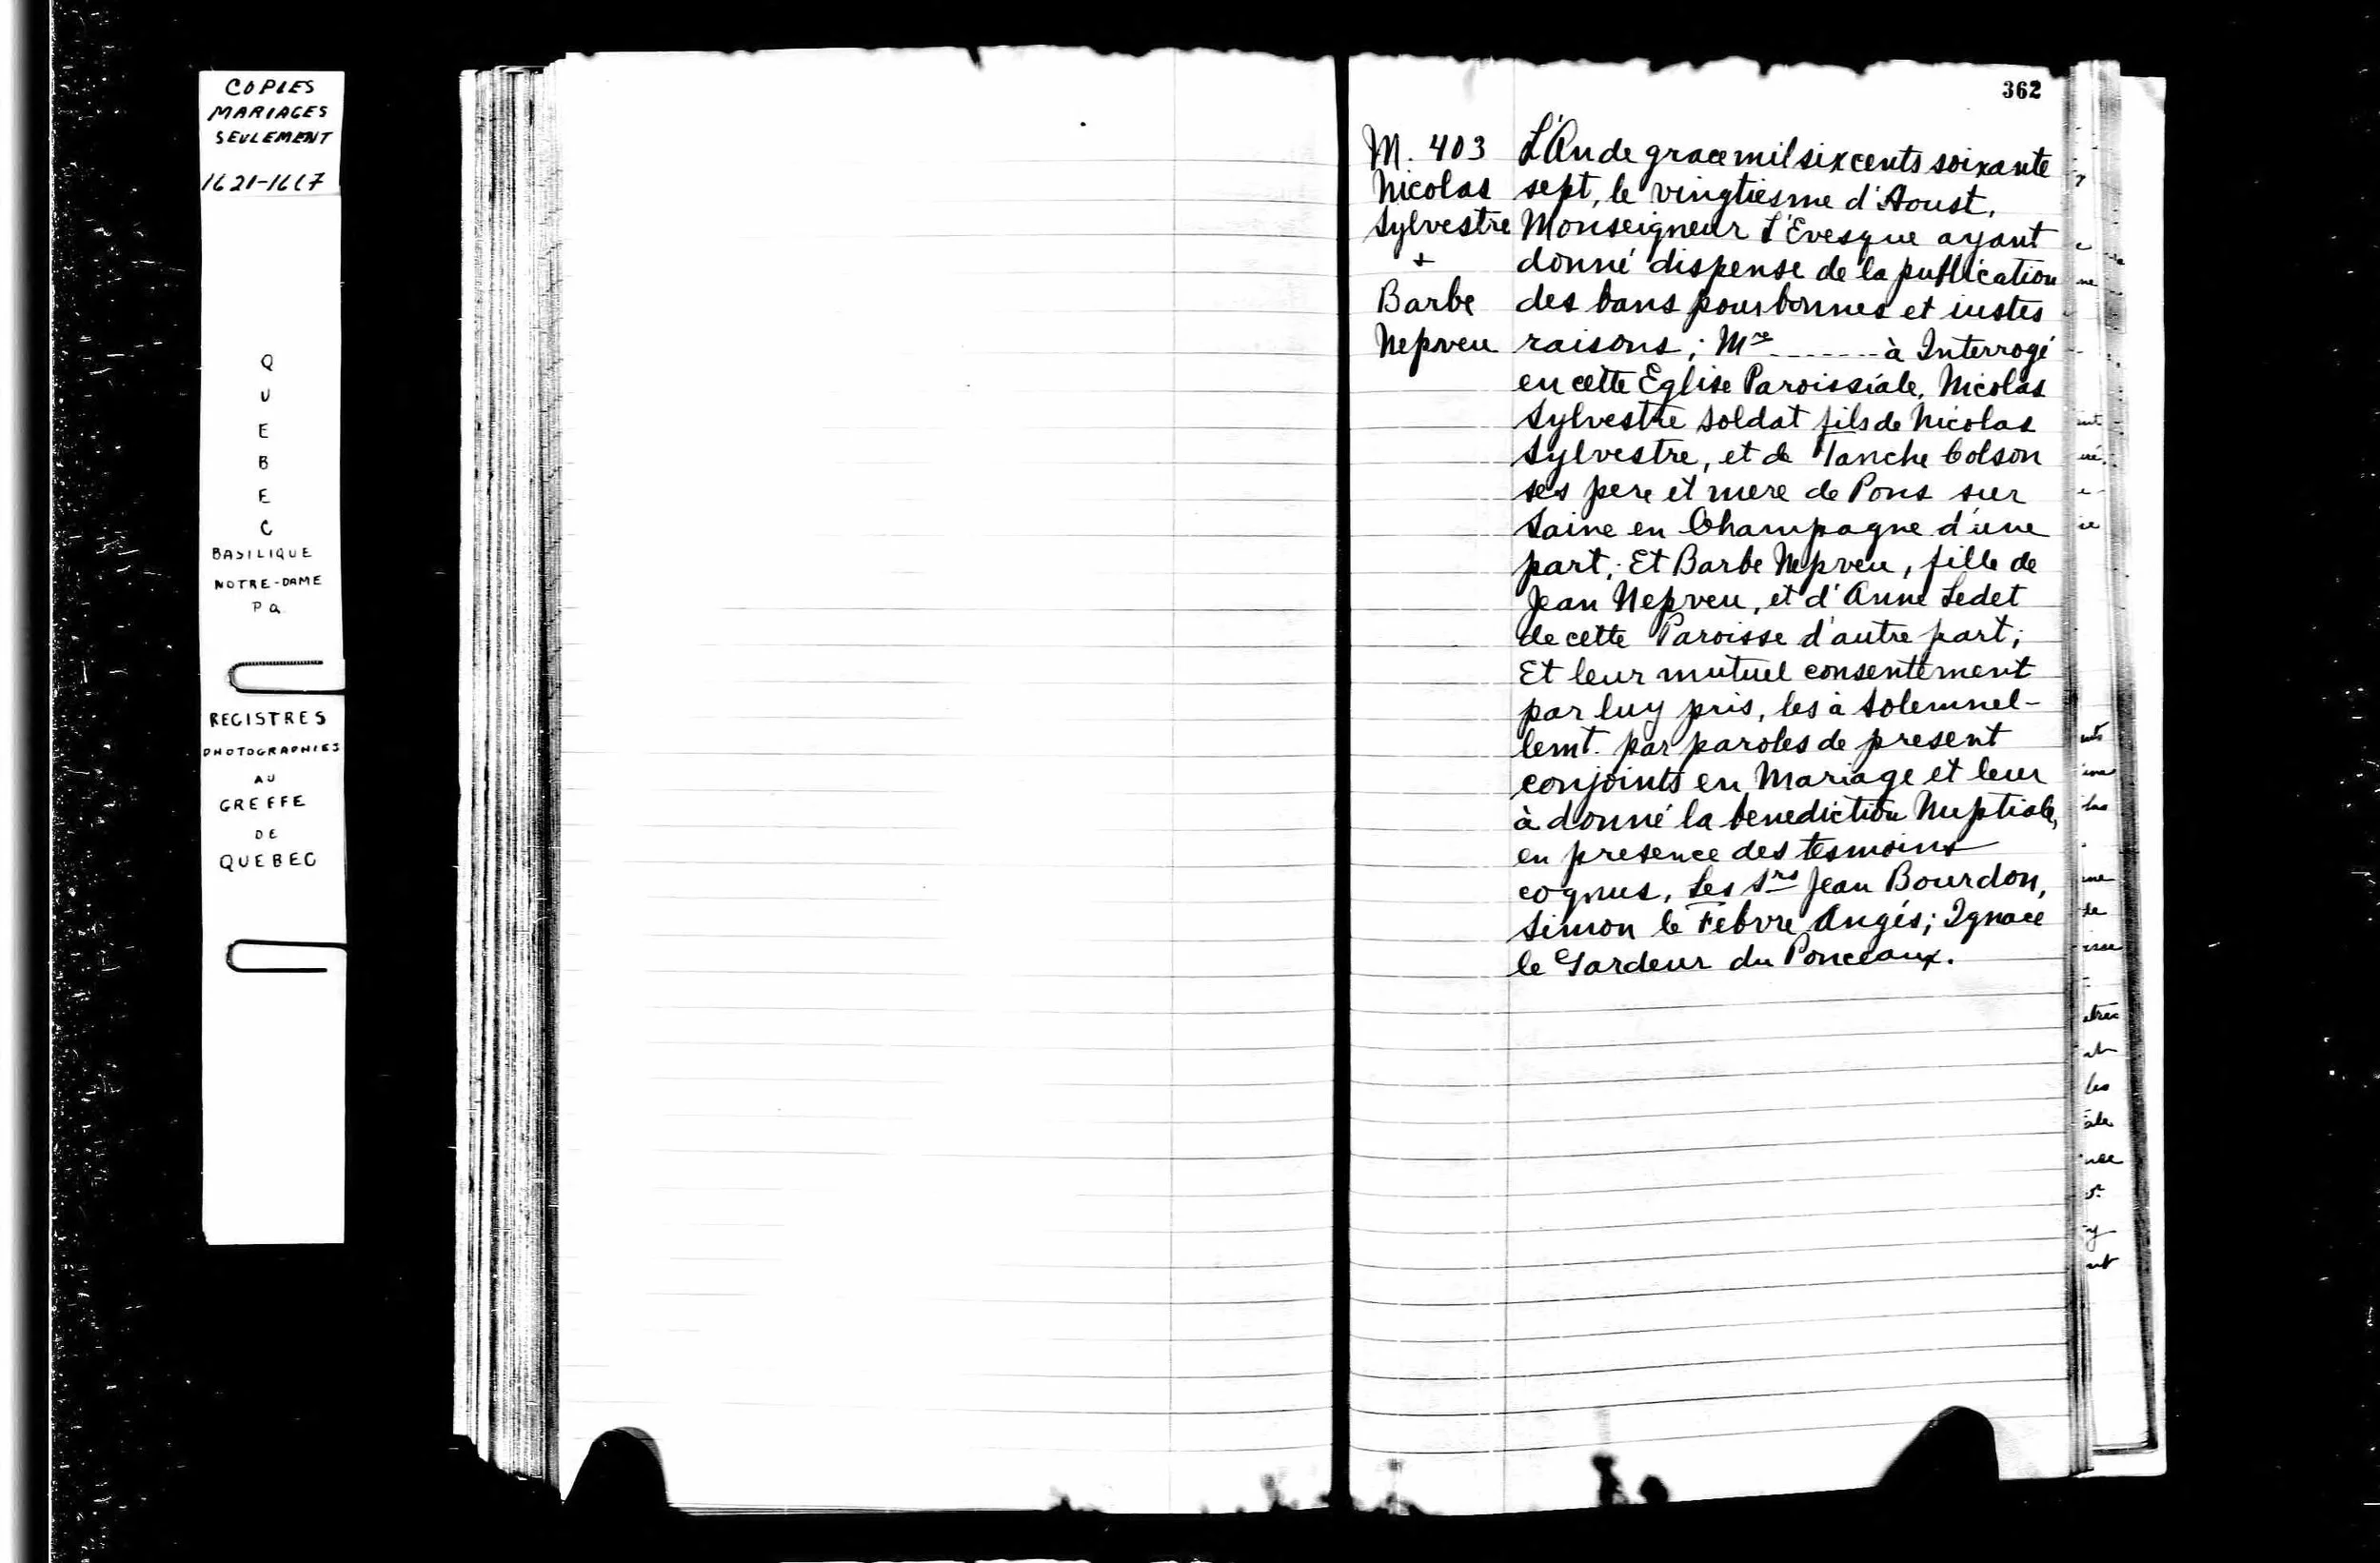 COPIES
MARIAGES
SEULEMENT
1621-1667
Q
U
E
B
E
C
BASILIQUE
NOTRE-DAME
P Q
REGISTRES
PHOTOGRAPHIES
AU
GREFFE
DE
QUEBEC
362
M. 403
Nicolas
Sylvestre
+
Barbe
Nepveu
L'An de grace mil six cents soixante
sept, le vingtiesme d'Aoust,
Monseigneur L'Evesque ayant
donné dispense de la publication
des bans pour bonnes et iustes
raisons; Mre ------- à Interrogé
en cette Eglise Paroissiale, Nicolas
Sylvestre soldat fils de Nicolas
Sylvestre, et de Tanche Colson
ses pere et mere de Pons sur
Saine en Champagne d'une
part; Et Barbe Nepveu, fille de
Jean Nepveu, et d'Anne Ledet
de cette Paroisse d'autre part;
Et leur mutuel consentement
par luy pris, les à solemnel-
lemt. par paroles de present
conjoints en Mariage et leur
à donné la benediction Nuptiale,
en presence des tesmoins
cognus, Les Srs Jean Bourdon,
Simon le Febvre Angés; Ignace
le Gardeur du Ponceaux.